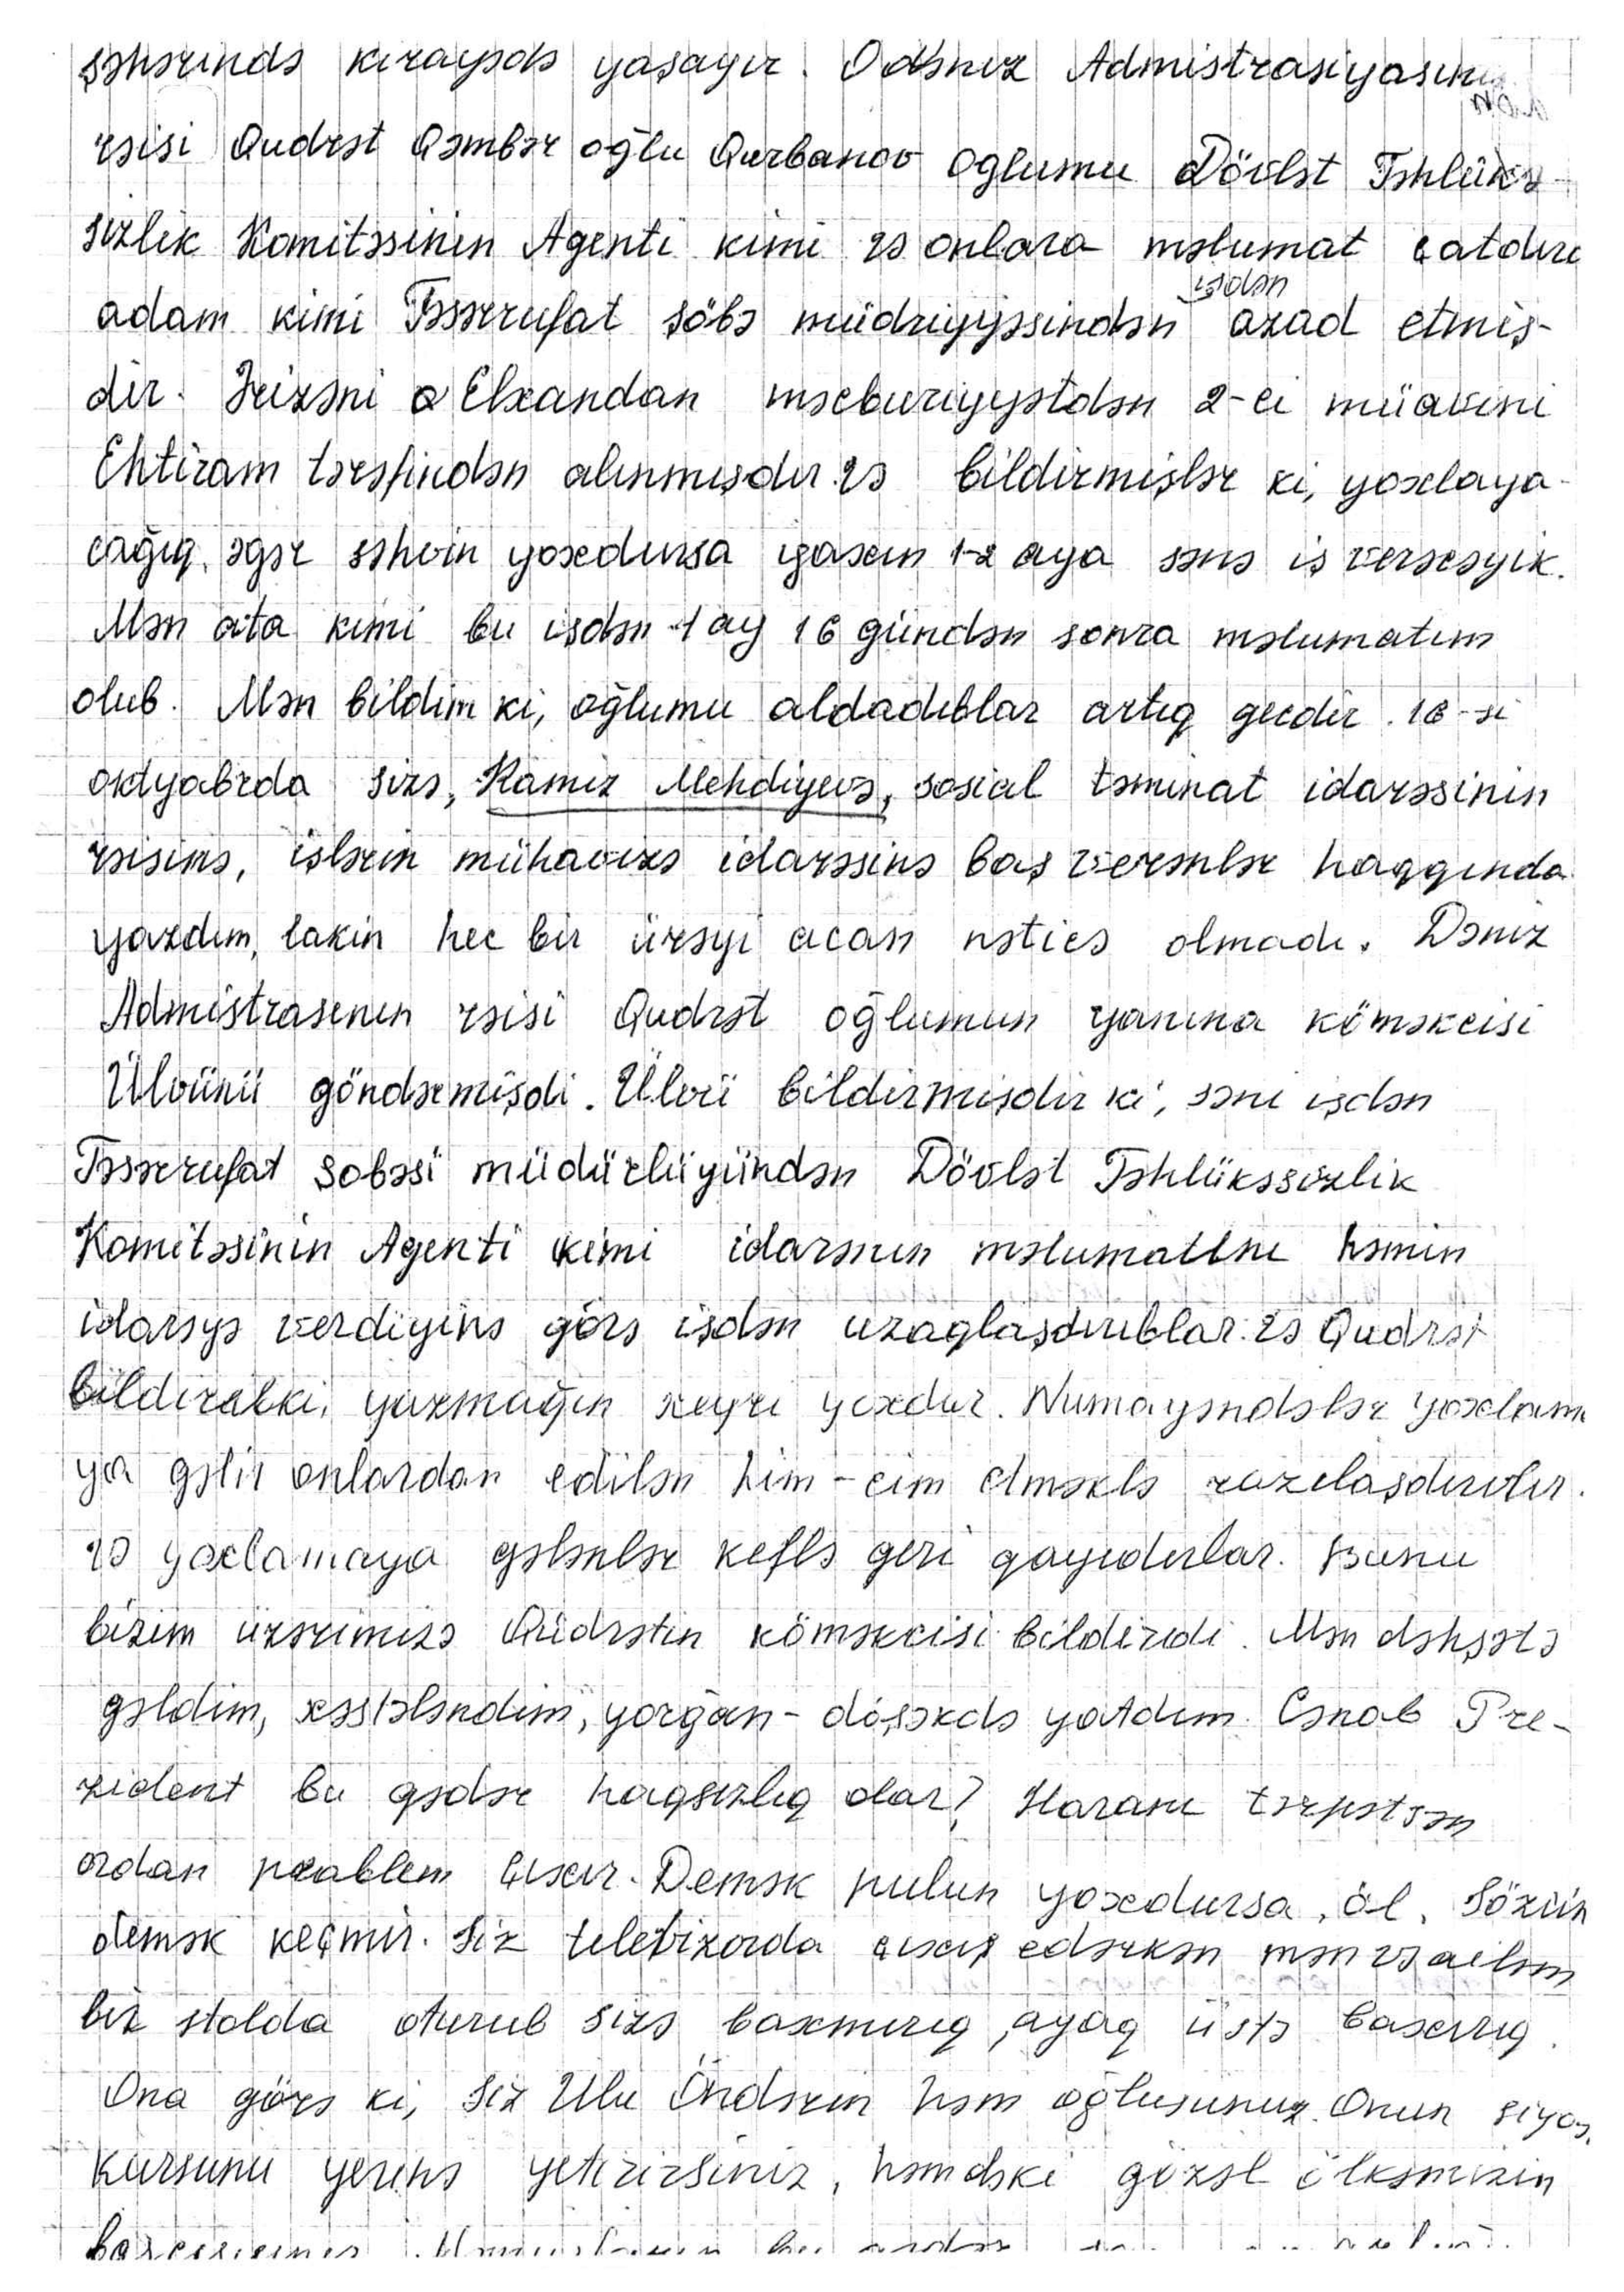 şəhərində kirayədə yaşayır. O dəniz Admistrasiyasını
rəisi Qudrət Qəmbər oğlu Qurbanov oğlumu Dövlət Təhlükə
sizlik Komitəsinin Agenti kimi və onlara məlumat çatdırı
işdən
adam kimi Təsərrufat şöbə müdriyyəsindən azad etmiş-
dir. Ərizəni Elxandan məcburiyyətdən 2-ci müavini
Ehtiram tərəfindən alınmışdır. və bildirmişlər ki, yoxlaya-
cağıq, əgər səhvin yoxdursa yaxın 1-2 aya sənə iş verəcəyik.
Mən ata kimi bu işdən 1 ay 16 gündən sonra məlumatım
olub. Mən bildim ki, oğlumu aldadıblar artıq gecdir. 16-sı
oktyabrda sizə, Ramiz Mehdiyevə, sosial təminat idarəsinin
rəisinə, işlərin mühavizə idarəsinə baş verənlər haqqında
yazdım, lakin hec bir ürəyi acan nəticə olmadı. Dəniz
Admistrasenın rəisi Qudrət oğlumun yanına köməkcisi
Ülvünü göndərmişdi. Ülvü bildirmişdir ki, səni işdən
Təsərrufat Şobəsi müdürlüyündən Dövlət Təhlükəsizlik
Komitəsinin Agenti kimi idarənın məlumatlnı həmin
idarəyə verdiyinə görə işdən uzaqlaşdırıblar. və Qudrət
bildirabki, yazmağın xeyri yoxdur. Numayəndələr yoxlama
ya gəlir onlardan edilən him-cim etməklə razılaşdırılır.
və yoxlamaya gələnlər kefle geri qayıdırlar. Bunu
bizim üzərimizə Qüdrətin köməkcisi bildirdi. Mən dəhşətə
gəldim, xəstələndim, yorğan-döşəkdə yatdım. Cənab Pre-
zident bu qədər haqsızlıq olar? Haranı tərpətsən
ordan problem çıxır. Demək pulun yoxdursa, öl. Sözün
demək keçmir. Siz televizorda çıxış edərkən mən və ailəm
biz stolda oturub sizə baxmırıq, ayaq üstə baxırıq.
Ona görə ki, Siz Ulu Öndərin həm oğlusunuz. Onun siyas
kursunu yerinə yetirirsiniz, həmdəki gözəl ölkəmizin